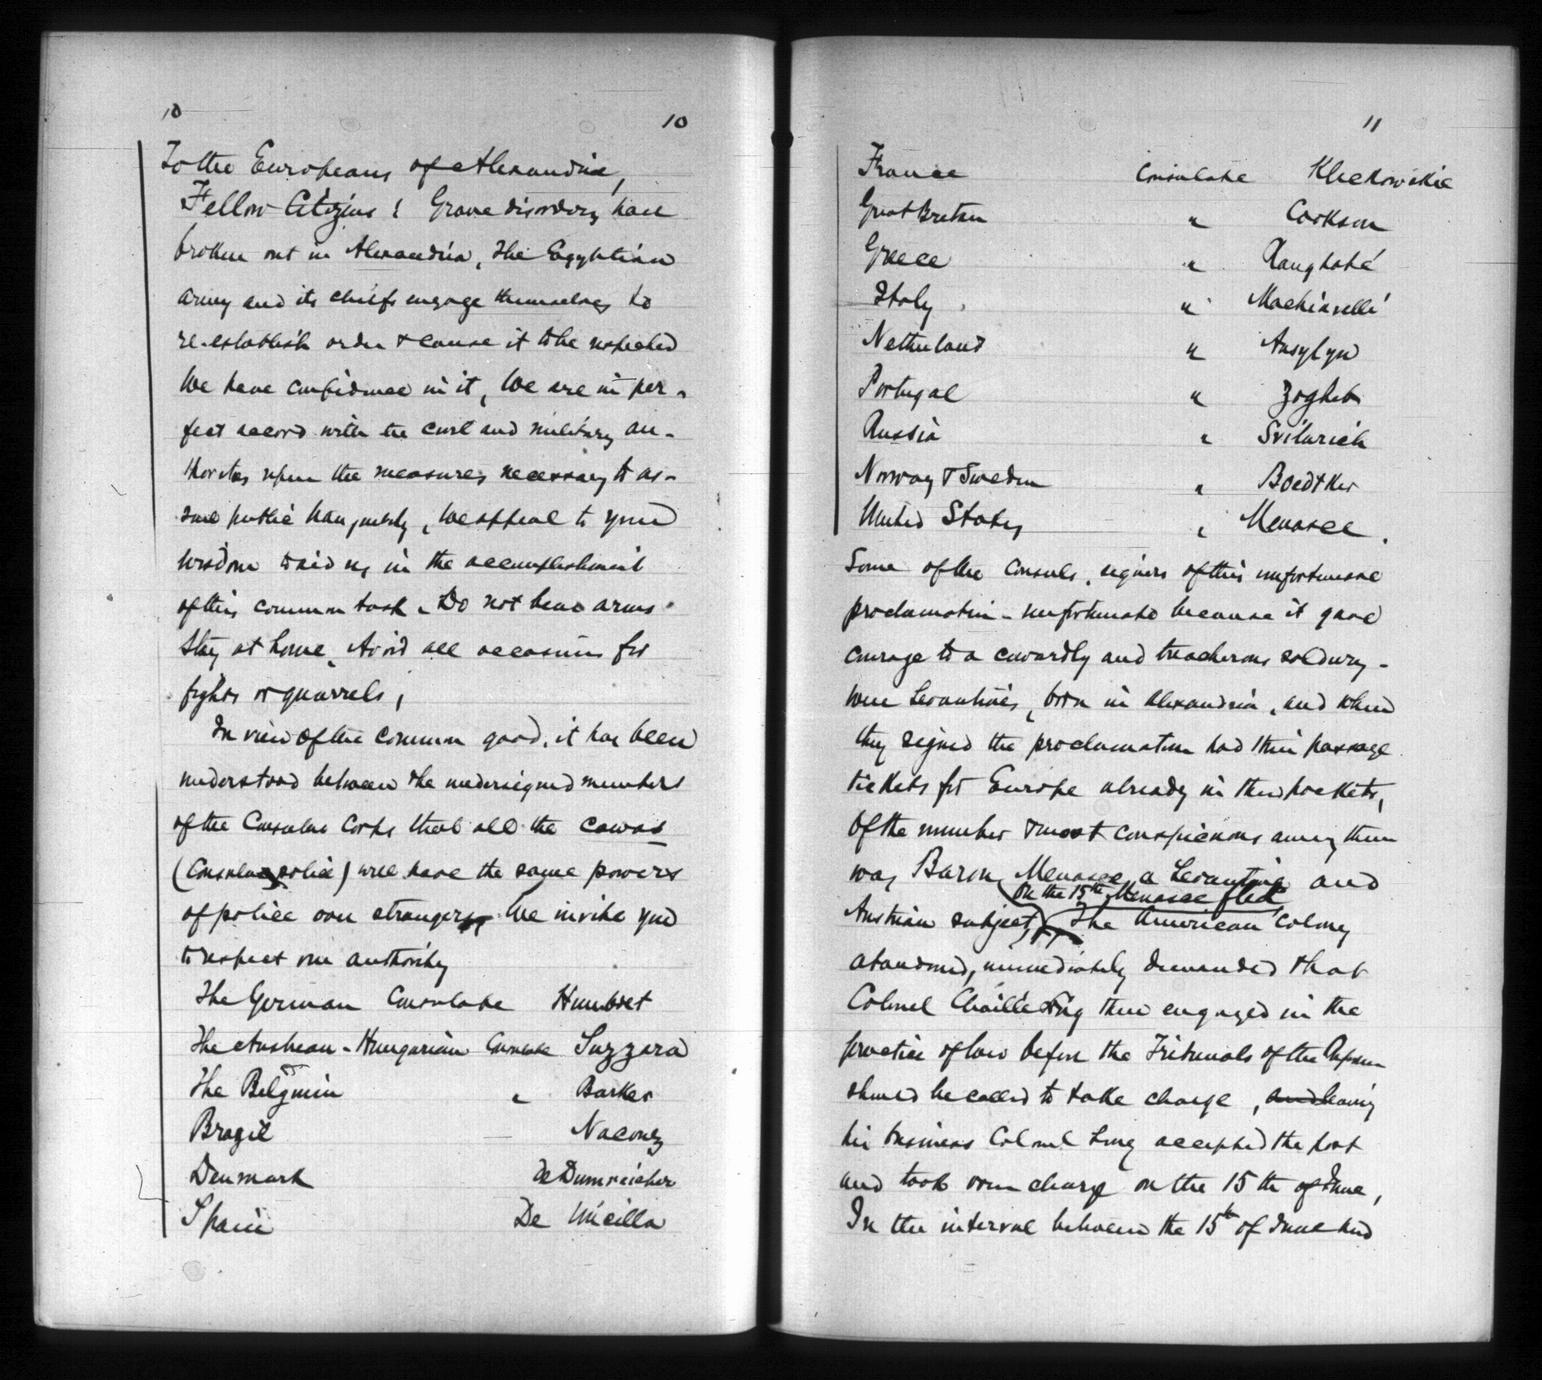 10
10
To the Europeans of Alexandria,
Fellow Citizens! Grave disorders have
broken out in Alexandria, the Egyptian
army and its chiefs engage themselves to
re-establish order & cause it to be respected
We have confidence in it, We are in per-
fect accord with the civil and military au-
thorites upon the measures necessary to as-
sure public tranquility, We appeal to your
wisdom to aid us in the accomplishment
of this common task. Do not bear arms.
Stay at home. Avoid all occasions for
fights or quarrels,
In view of the common good, it has been
understood between the undersigned members
of the Consular Corps that all the cawas
(Consular police) will have the same powers
of police over strangers We invite you
to respect our authority
The German Consulate Humbret
The Austrian-Hungarian Consulate Suzzara
The Belgium " Barker
Brazil — Nacouz
Denmark De Dumreicher
Spain De Uncilla
11
France Consulate Kleckowskie
Great Britain " Cookson
Greece " Ranghabé
Italy " Machiavelli
Netherland " Anslyn
Portugal " Zogheb
Russia " Svilarich
Norway & Sweden " Boedtker
United States " Menasce.
Some of the Consuls, signers of this unfortunate
proclamation - unfortunate because it gave
courage to a cowardly and treacherous soldiery -
were Levantines, born in Alexandria, and when
they signed the proclamation had their passage
tickets for Europe already in their pockets,
Of the number & most conspicuous among them
was Baron Menasce, a Levantine and
On the 15th Menasce fled
Austrian subject, The American Colony
abandoned, immediately demanded that
Colonel Chaillé Long then engaged in the
practice of law before the Tribunals of the Reform
should be called to take charge, and leaving
his business Colonel Long accepted the post
and took over charge on the 15th of June,
In the interval between the 15th of June and